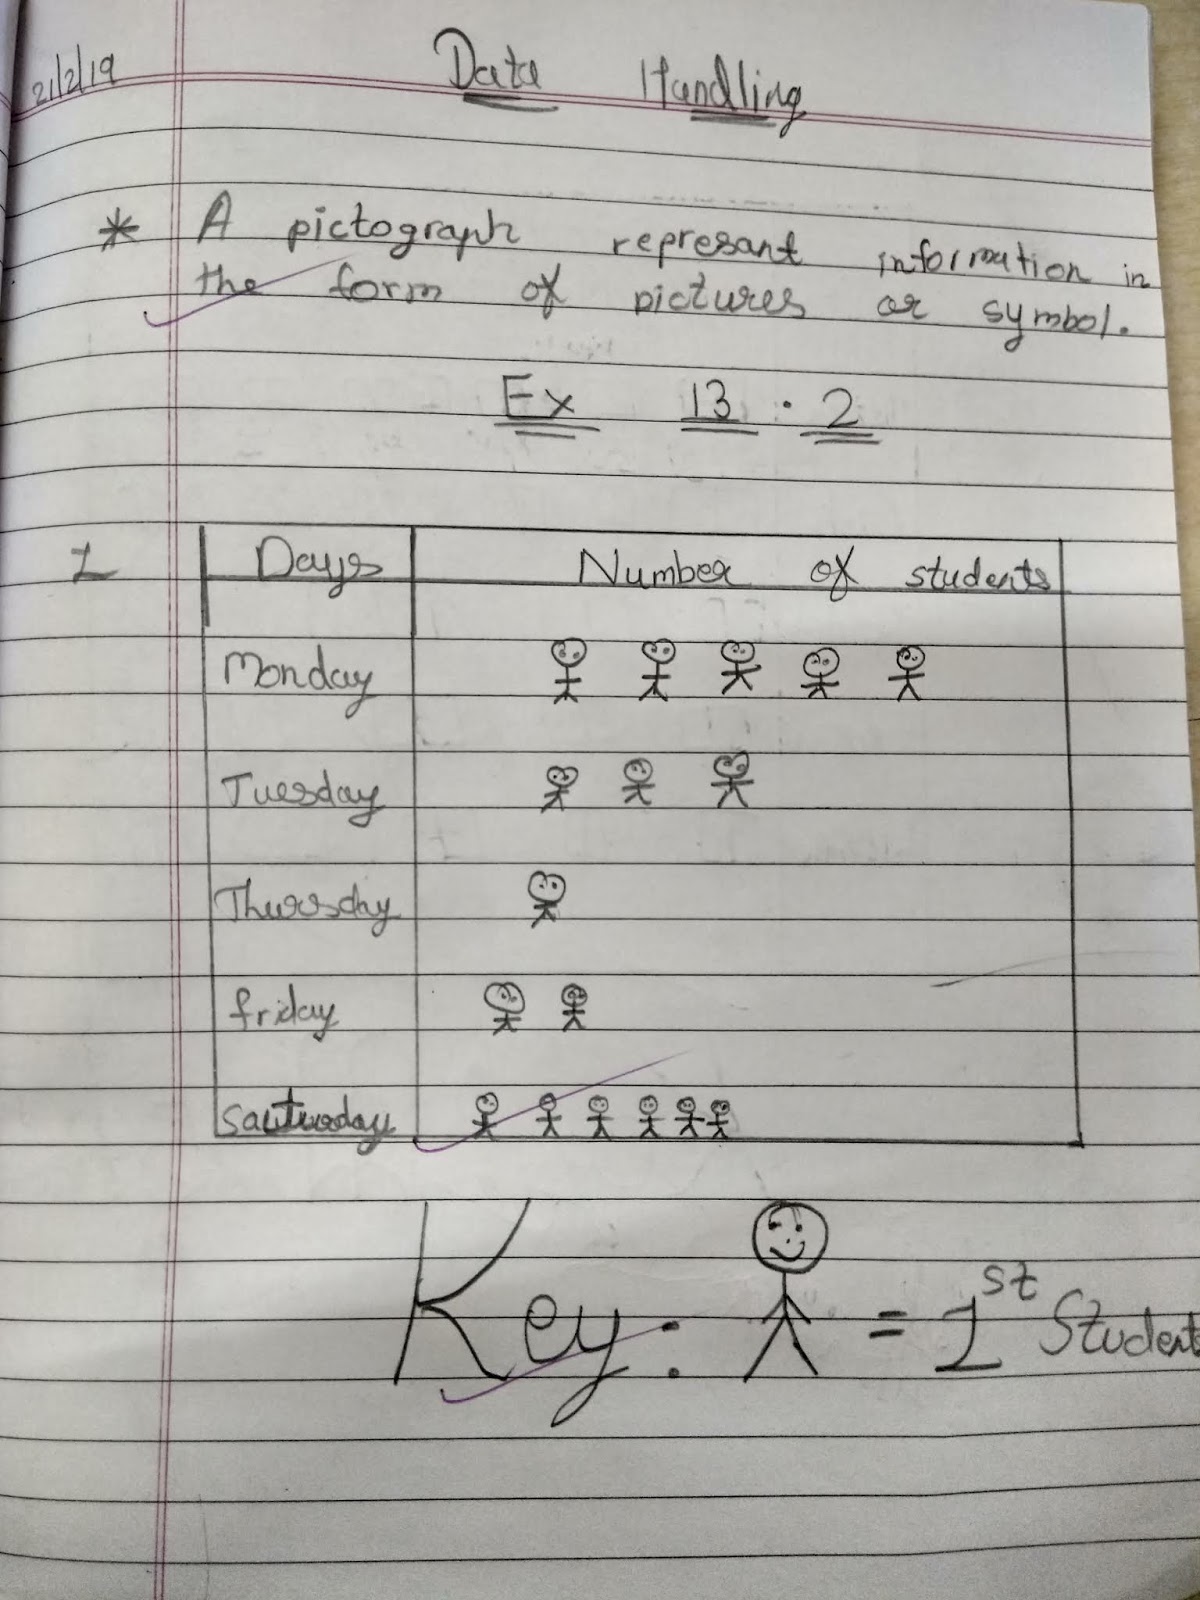 21/2/19
Data Handling
* A pictograph represant information in
the form of pictures or symbol.
Ex 13.2
1 Days Number of students
Monday
Tuesday
Thursday
friday
Sauturday
Key: = 1st Student